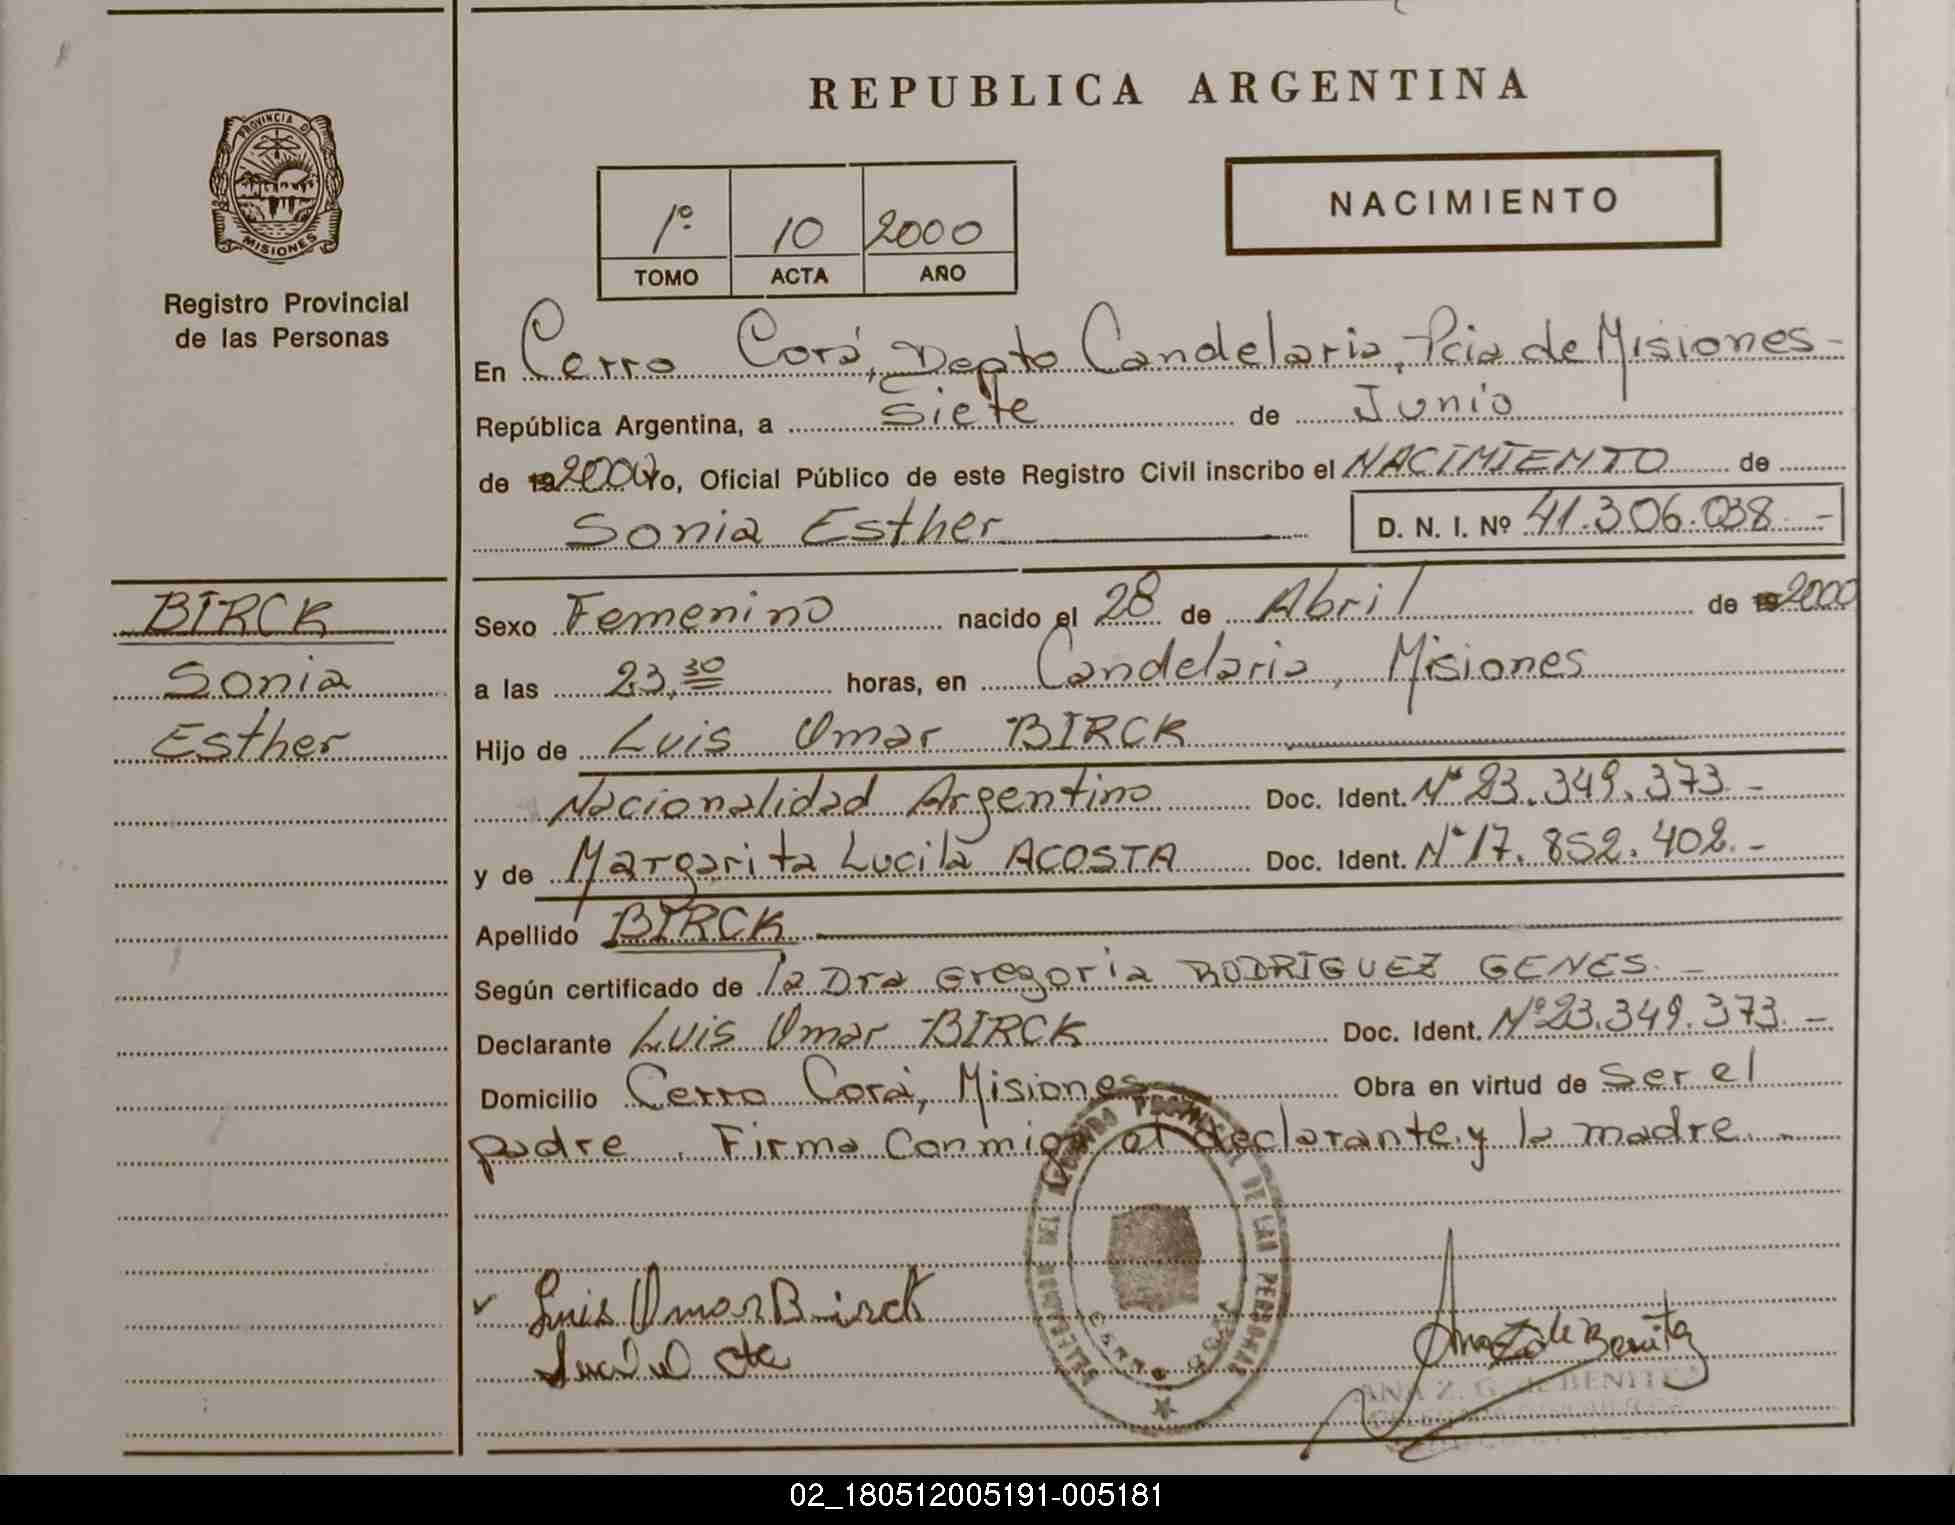 REPUBLICA ARGENTINA
PROVINCIA D
MISIONES
Registro Provincial
de las Personas
NACIMIENTO
1º 10 2000
TOMO ACTA AÑO
En Cerro Corá, Depto Candelaria, Pcia de Misiones -
República Argentina, a Siete de Junio
de 19 2000 Yo, Oficial Público de este Registro Civil inscribo el NACIMIENTO de
Sonia Esther D. N. I. Nº 41.306.038 -
BIRCK
Sonia
Esther
Sexo Femenino nacido el 28 de Abril de 19 2000
a las 23,30 horas, en Candelaria, Misiones
Hijo de Luis Omar BIRCK
Nacionalidad Argentino Doc. Ident. Nº 23.349.373 -
y de Margarita Lucila ACOSTA Doc. Ident. Nº 17.852.402. -
Apellido BIRCK
Según certificado de la Dra Gregoria RODRIGUEZ GENES. -
Declarante Luis Omar BIRCK Doc. Ident. Nº 23.349.373. -
Domicilio Cerro Corá, Misiones Obra en virtud de Ser el
padre. Firma Conmigo el declarante y la madre. -
DEL REGISTRO PROVINCIAL DE LAS PERSONAS
CERRO CORA
Luis Omar Birck
Ana Z de Benitez
ANA Z. G. de BENITEZ
02_180512005191-005181